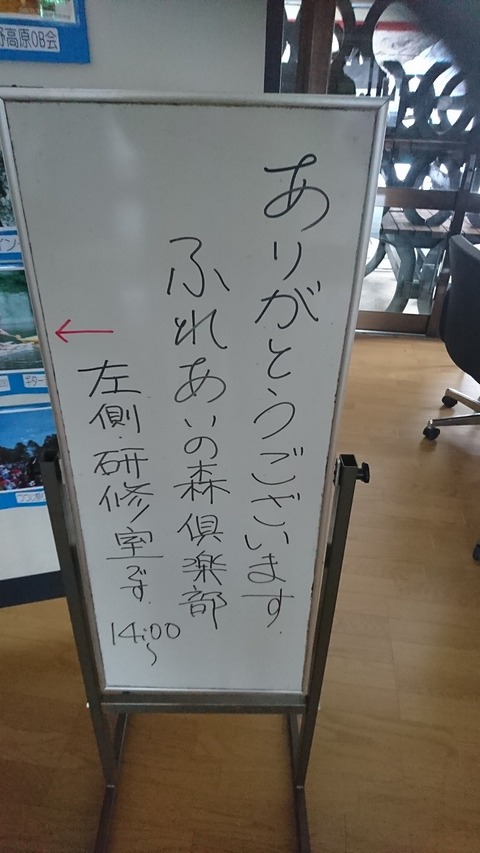 ありがとうございます.
ふれあいの森倶楽部
←
左側・研修室です.
14:00
～
野高原OB会